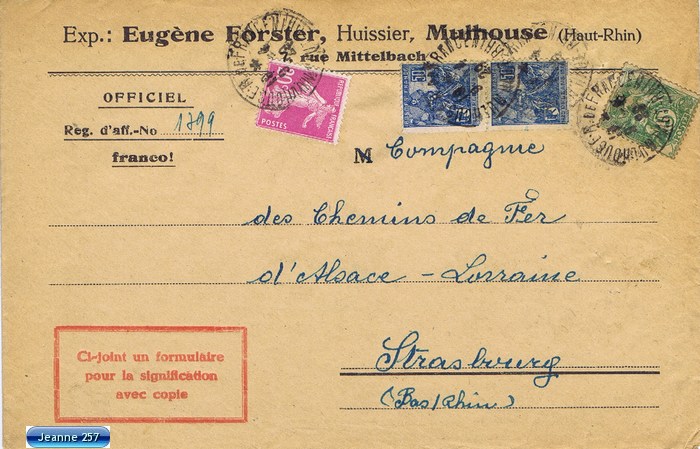 Exp.: Eugène Forster, Huissier, Mulhouse (Haut-Rhin)
rue Mittelbach
OFFICIEL
Reg. d'aff.-No 1799
franco!
POSTES
M Compagnie
des Chemins de Fer
d'Alsace - Lorraine
Strasbourg
(Bas/Rhin)
Ci-joint un formulaire
pour la signification
avec copie
Jeanne 257